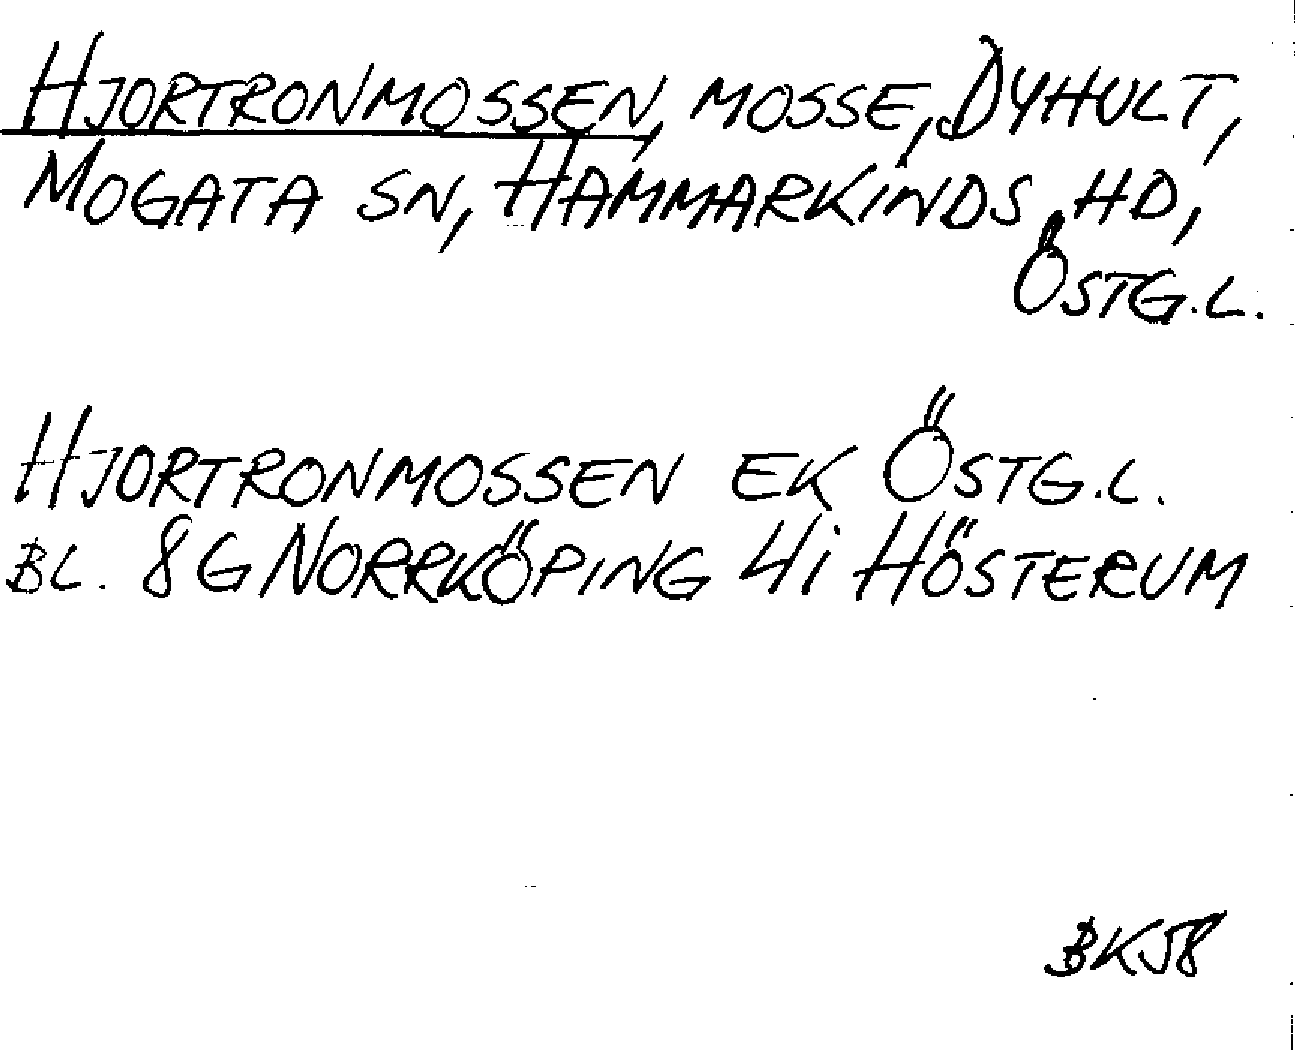 HJORTRONMOSSEN, MOSSE, DYHULT,
MOGATA SN, HAMMARKINDS HD,
ÖSTG.L.
HJORTRONMOSSEN EK ÖSTG.L.
BL. 8G NORRKÖPING 4i HÖSTERUM
BK58